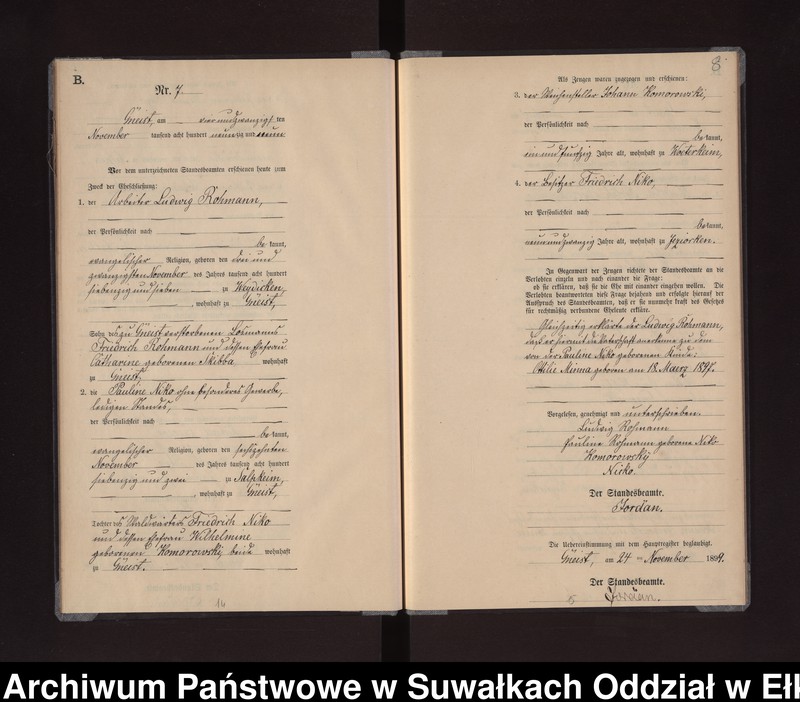 B.
Nr. 7.
Gneist, am vierundzwanzigsten
November tausend acht hundert neunzig und neun
Vor dem unterzeichneten Standesbeamten erschienen heute zum
Zweck der Eheschließung:
1. der Arbeiter Ludwig Rohmann,
der Persönlichkeit nach
be kannt,
evangelischer Religion, geboren den drei und
zwanzigsten November des Jahres tausend acht hundert
siebenzig und sieben zu Weydicken,
, wohnhaft zu Gneist,
Sohn des zu Gneist verstorbenen Losmanns
Friedrich Rohmann und dessen Ehefrau
Catharine geborenen Skibba wohnhaft
zu Gneist,
2. die Pauline Niko ohne besonderes Gewerbe,
ledigen Standes,
der Persönlichkeit nach
be kannt,
evangelischer Religion, geboren den sechszehnten
November des Jahres tausend acht hundert
siebenzig und zwei zu Salpkeim,
, wohnhaft zu Gneist,
Tochter des Waldwärters Friedrich Niko
und dessen Ehefrau Wilhelmine
geborenen Komorowski, beide wohnhaft
zu Gneist.
8
Als Zeugen waren zugezogen und erschienen:
3. der Weichensteller Johann Komorowski,
der Persönlichkeit nach
be kannt,
ein und fünfzig Jahre alt, wohnhaft zu Kosterkeim,
4. der Besitzer Friedrich Niko,
der Persönlichkeit nach
be kannt,
neunundzwanzig Jahre alt, wohnhaft zu Jeziorken.
In Gegenwart der Zeugen richtete der Standesbeamte an die
Verlobten einzeln und nach einander die Frage:
ob sie erklären, daß sie die Ehe mit einander eingehen wollen. Die
Verlobten beantworteten diese Frage bejahend und erfolgte hierauf der
Ausspruch des Standesbeamten, daß er sie nunmehr kraft des Gesetzes
für rechtmäßig verbundene Eheleute erkläre.
Gleichzeitig erklärte der Ludwig Rohmann,
daß er hiermit die Vaterschaft anerkenne zu dem
von der Pauline Niko geborenen Kinde:
Ottilie Minna geboren am 18. Maerz 1897.
Vorgelesen, genehmigt und unterschrieben.
Ludwig Rohmann
Pauline Rohmann geborene Niko
Komorowskÿ
Nicko.
Der Standesbeamte.
Jordan.
Die Uebereinstimmung mit dem Hauptregister beglaubigt.
Gneist, am 24 ten November 1899.
Der Standesbeamte.
Jordan.
Archiwum Państwowe w Suwałkach Oddział w Ełk